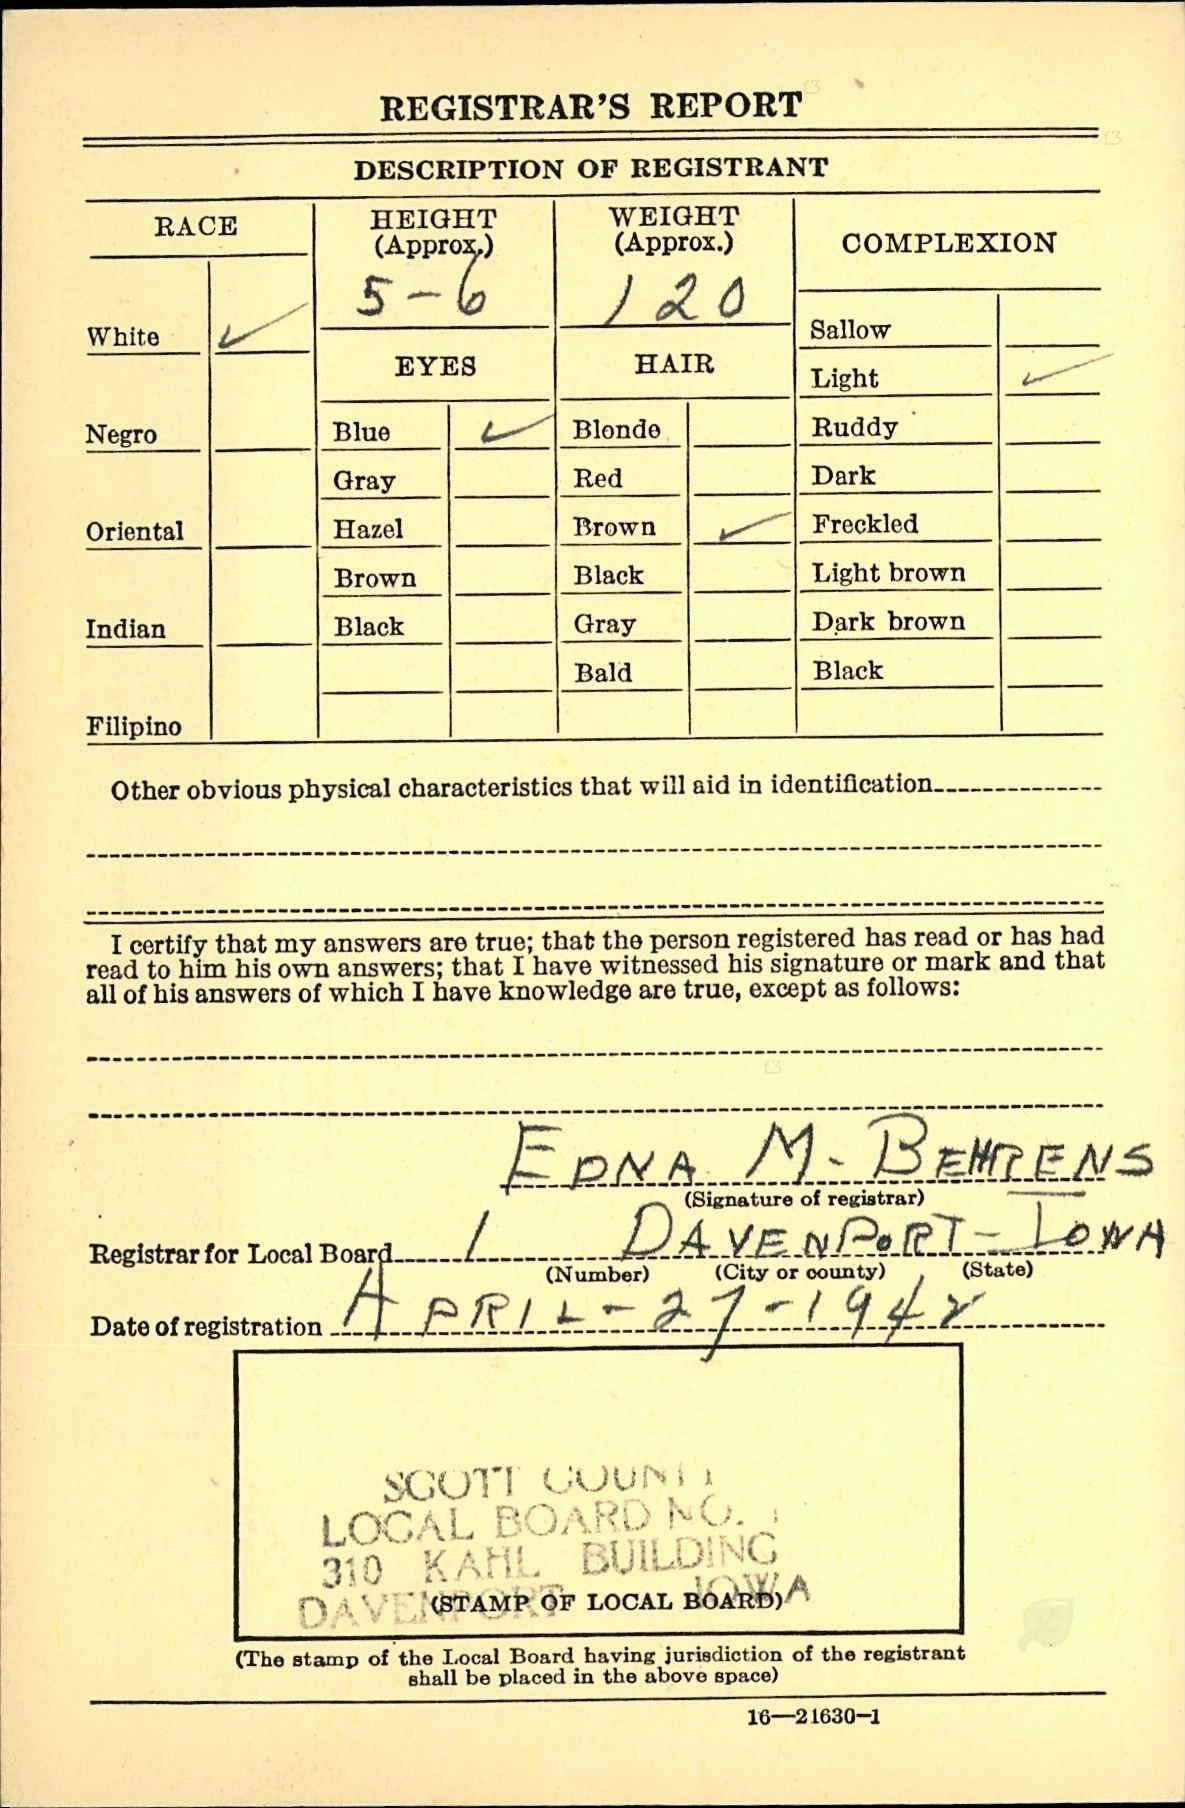 REGISTRAR'S REPORT
DESCRIPTION OF REGISTRANT
RACE
HEIGHT
(Approx.)
5-6
WEIGHT
(Approx.)
120
COMPLEXION
White ✓
Negro
Oriental
Indian
Filipino
EYES
Blue ✓
Gray
Hazel
Brown
Black
HAIR
Blonde
Red
Brown ✓
Black
Gray
Bald
Sallow
Light ✓
Ruddy
Dark
Freckled
Light brown
Dark brown
Black
Other obvious physical characteristics that will aid in identification
I certify that my answers are true; that the person registered has read or has had
read to him his own answers; that I have witnessed his signature or mark and that
all of his answers of which I have knowledge are true, except as follows:
EDNA M. BEHRENS
(Signature of registrar)
Registrar for Local Board 1 DAVENPORT - IOWA
(Number) (City or county) (State)
Date of registration APRIL-27-1942
SCOTT COUNTY
LOCAL BOARD NO. 1
310 KAHL BUILDING
DAVENPORT IOWA
(STAMP OF LOCAL BOARD)
(The stamp of the Local Board having jurisdiction of the registrant
shall be placed in the above space)
16—21630-1